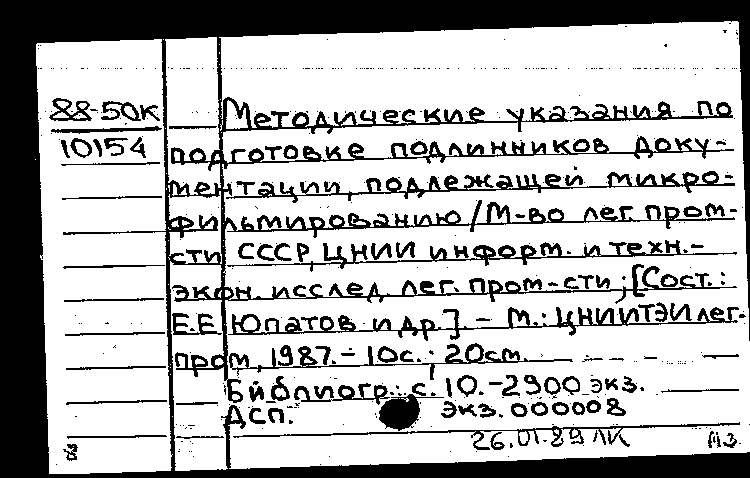 88-50к
10154
Методические указания по
подготовке подлинников доку-
ментации, подлежащей микро-
фильмированию / М-во лег. пром-
сти СССР, ЦНИИ информ. и техн.-
экон. исслед. лег. пром-сти; [Сост.:
Е.Е. Юпатов и др.]. - М.: ЦНИИТЭИлег-
пром, 1987. - 10с.; 20см.
Библиогр.: с. 10. - 2900 экз.
ДСП. экз. 000008
26.01.89 ЛК